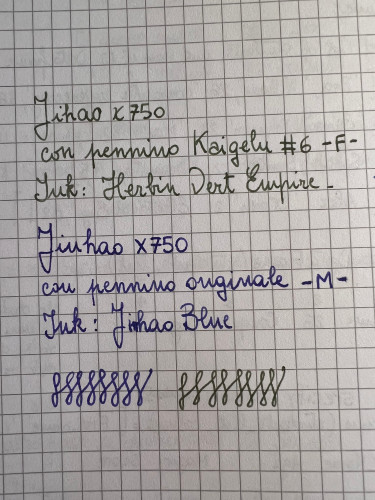 Jihao x750
con pennino Kaigelu #6 -F-
Ink: Herbin Vert Empire -
Jinhao X750
con pennino originale -M-
Ink: Jinhao Blue